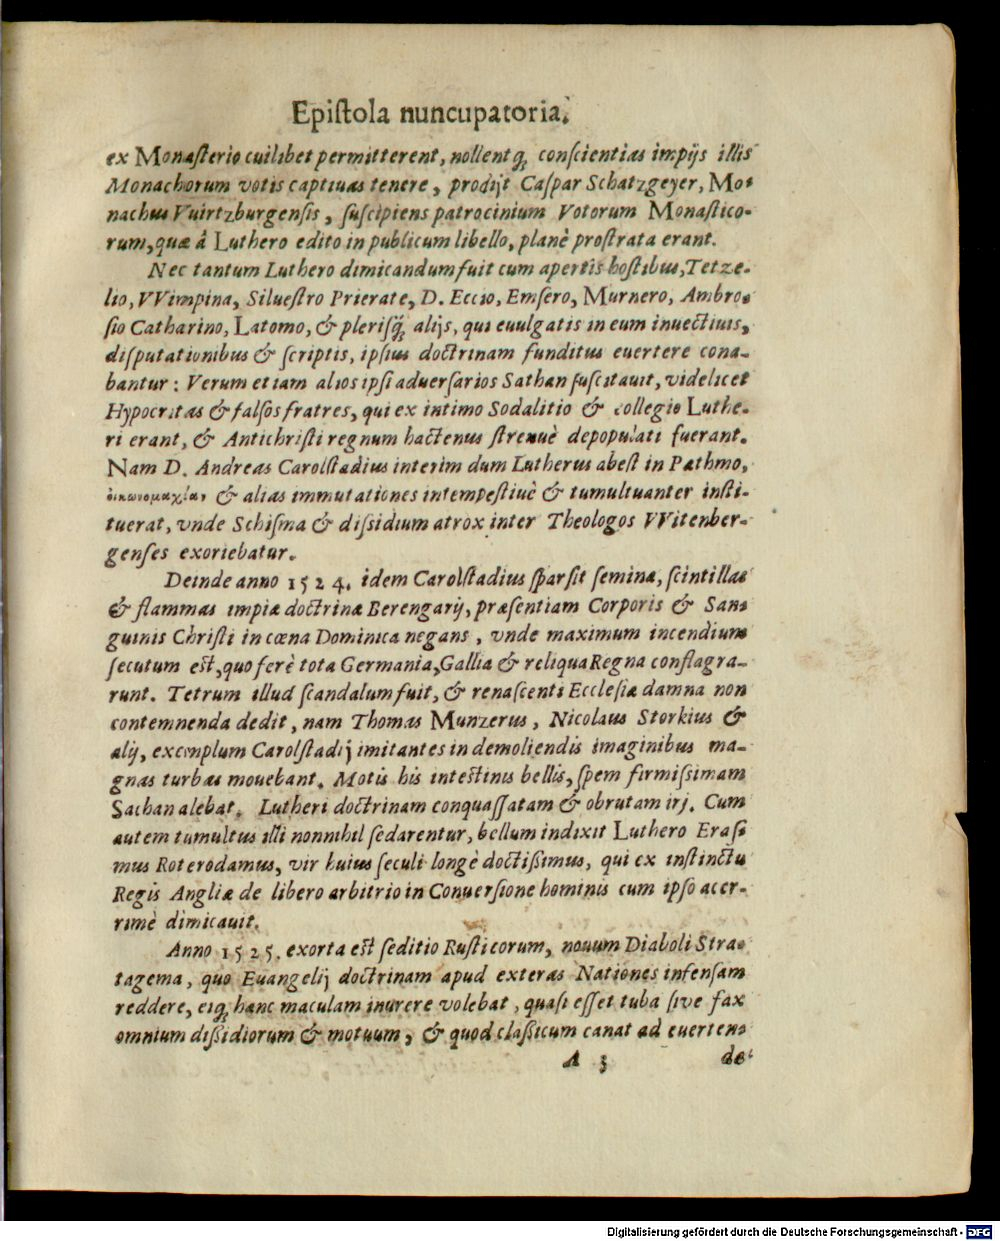 Epiſtola nuncupatoria.
ex Monaſterio cuilibet permitterent, nollentq́; conſcientias impijs illis
Monachorum votis captiuas tenere, prodijt Caſpar Schatzgeyer, Mo-
nachus Vuirtzburgenſis, ſuſcipiens patrocinium Votorum Monaſtico-
rum, quæ â Luthero edito in publicum libello, planè proſtrata erant.
Nec tantum Luthero dimicandum fuit cum apertis hoſtibus, Tetze-
lio, VVimpina, Silueſtro Prierate, D. Eccio, Emſero, Murnero, Ambro-
ſio Catharino, Latomo, & pleriſq́; alijs, qui euulgatis in eum inuectiuis,
diſputationibus & ſcriptis, ipſius doctrinam funditus euertere cona-
bantur: Verum etiam alios ipſi aduerſarios Sathan ſuſcitauit, videlicet
Hypocritas & falſos fratres, qui ex intimo Sodalitio & collegio Luthe-
ri erant, & Antichriſti regnum hactenus ſtrenuè depopulati fuerant.
Nam D. Andreas Carolſtadius interim dum Lutherus abeſt in Pathmo,
& alias immutationes intempeſtiuè & tumultuanter inſti-
tuerat, vnde Schiſma & diſſidium atrox inter Theologos VVitenber-
genſes exoriebatur.
Deinde anno 1524. idem Carolſtadius ſparſit ſemina, ſcintillas
& flammas impiæ doctrinæ Berengarij, præſentiam Corporis & San-
guinis Chriſti in cœna Dominica negans, vnde maximum incendium
ſecutum eſt, quo ferè tota Germania, Gallia & reliqua Regna conflagra-
runt. Tetrum illud ſcandalum fuit, & renaſcenti Eccleſiæ damna non
contemnenda dedit, nam Thomas Munzerus, Nicolaus Storkius &
alij, exemplum Carolſtadij imitantes in demoliendis imaginibus ma-
gnas turbas mouebant. Motis his inteſtinis bellis, ſpem firmiſsimam
Sathan alebat, Lutheri doctrinam conquaſſatam & obrutam iri. Cum
autem tumultus illi nonnihil ſedarentur, bellum indixit Luthero Eraſ-
mus Roterodamus, vir huius ſeculi longè doctißimus, qui ex inſtinctu
Regis Angliæ de libero arbitrio in Conuerſione hominis cum ipſo acer-
rimè dimicauit.
Anno 1525. exorta eſt ſeditio Ruſticorum, nouum Diaboli Stra-
tagema, quo Euangelij doctrinam apud exteras Nationes infenſam
reddere, eiq́; hanc maculam inurere volebat, quaſi eſſet tuba ſive fax
omnium dißidiorum & motuum, & quod claßicum canat ad euerten-
A 3 de-
Digitalisierung gefördert durch die Deutsche Forschungsgemeinschaft - DFG